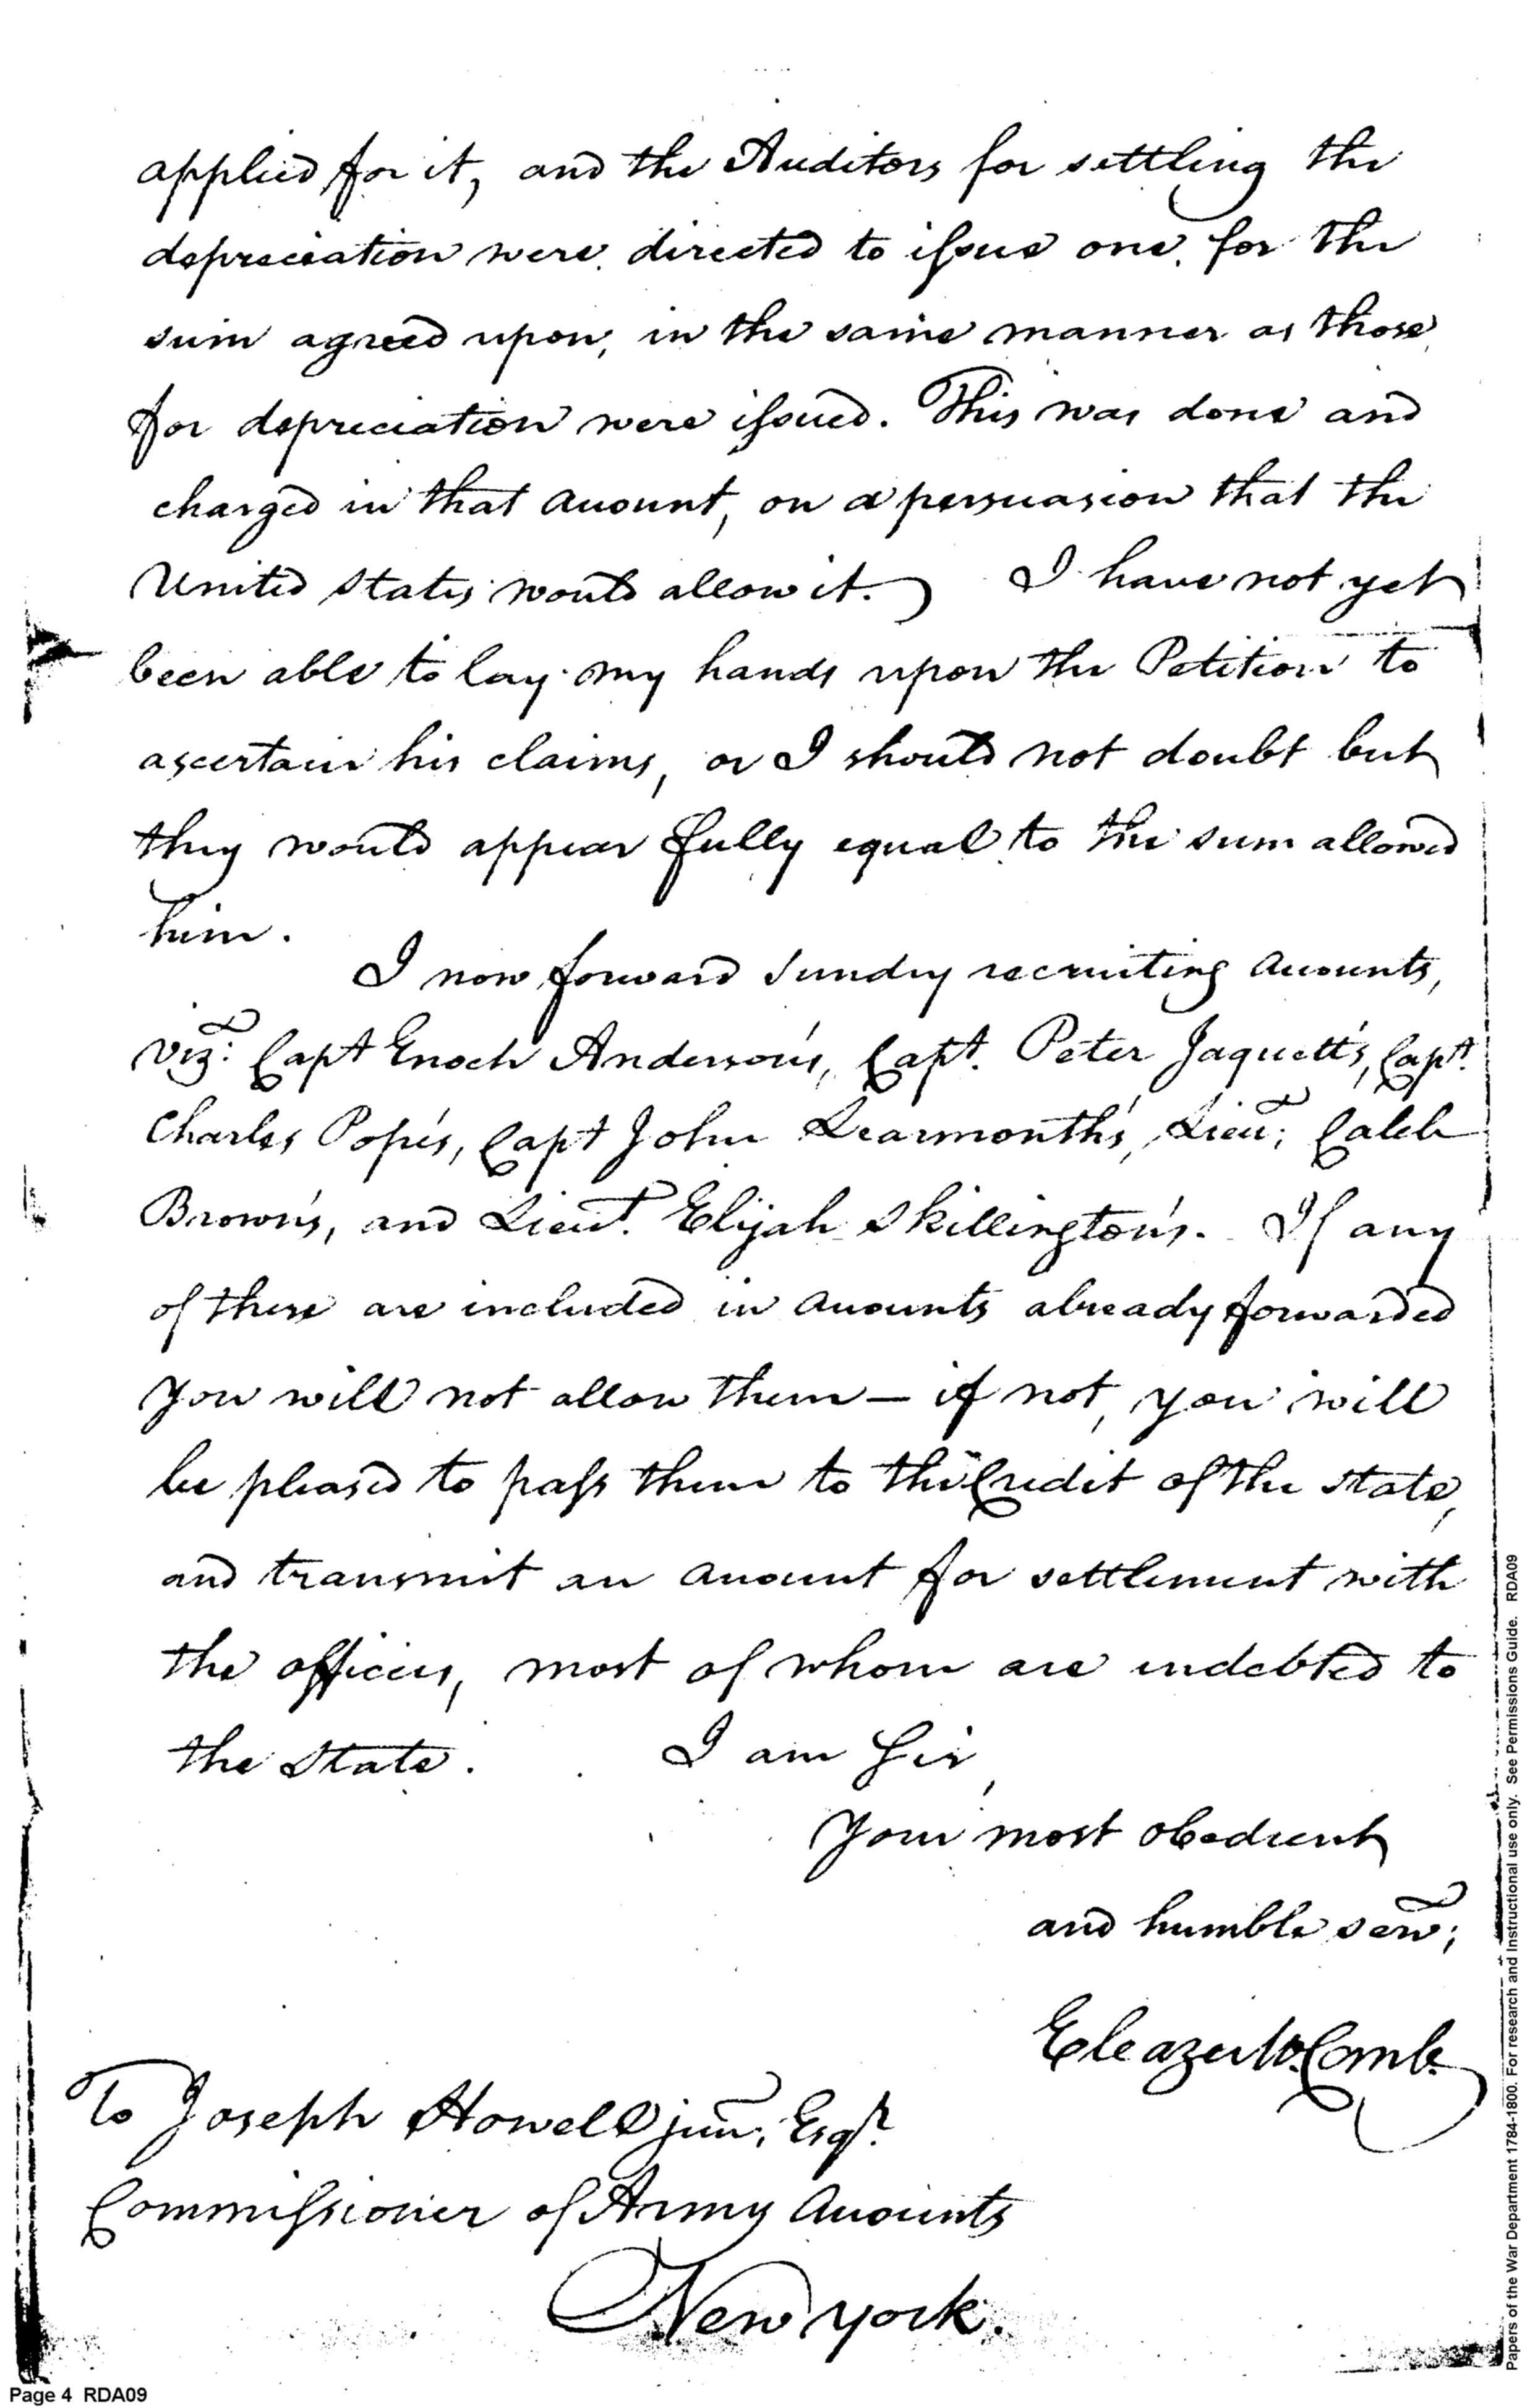 applied for it, and the Auditors for settling the
depreciation were directed to issue one, for the
sum agreed upon, in the same manner as those
for depreciation were issued. This was done and
charged in that account, on a persuasion that the
United States would allow it. I have not yet
been able to lay my hands upon the Petition to
ascertain his claims, or I should not doubt but
they would appear fully equal to the sum allowed
him.
I now forward sundry recruiting accounts,
viz: Capt Enoch Anderson's, Capt. Peter Jaquett's, Capt.
Charles Pope's, Capt John Learmonth's, Lieu; Caleb
Brown's, and Lieut. Elijah Skillington's. If any
of these are included in accounts already forwarded
you will not allow them — if not, you will
be pleased to pass them to the Credit of the State,
and transmit an account for settlement with
the officers, most of whom are indebted to
the State. I am Sir,
Your most obedient
and humble serv;
Eleazer McComb.
To Joseph Howell jun; Esqr.
Commissioner of Army Accounts
New York.
Page 4 RDA09
Papers of the War Department 1784-1800. For research and Instructional use only. See Permissions Guide. RDA09